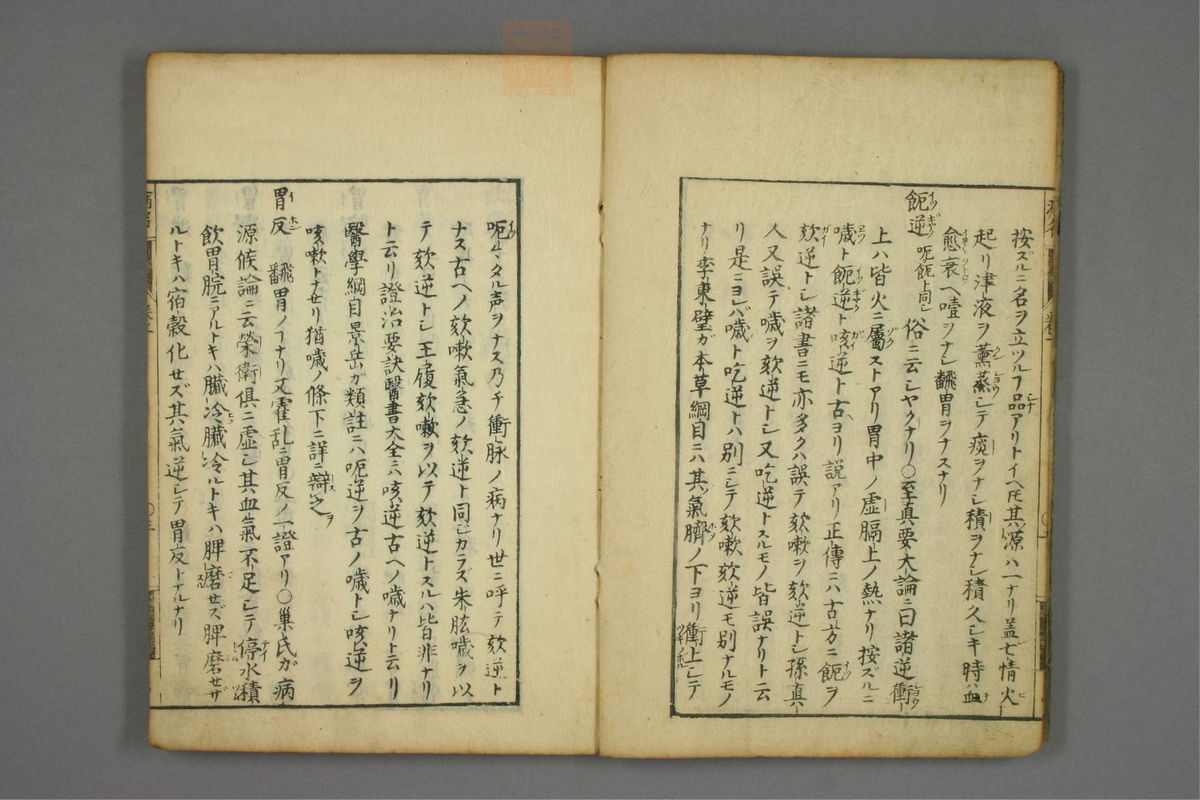 按ズルニ名ヲ立ツルヿ品アリトイヘ𪜈其源ハ一ナリ蓋七情火
起リ津液ヲ薫蒸シテ痰ヲナシ積ヲナシ積久シキ時ハ血
愈衰ヘ噎ヲナシ飜胃ヲナスナリ
䬦逆 呃䬦ト同シ 俗ニ云シヤクナリ○至真要大論ニ曰諸逆衝
上ハ皆火ニ屬ストアリ胃中ノ虚膈上ノ熱ナリ按ズルニ
噦ト䬦逆ト咳逆ト古ヨリ説アリ正傳ニハ古方ニ䬦ヲ
欬逆トシ諸書ニモ亦多クハ誤テ欬嗽ヲ欬逆トシ孫真
人又誤テ噦ヲ欬逆トシ又吃逆トスルモノ皆誤ナリト云
リ是ニヨレバ噦ト吃逆トハ別ニシテ欬嗽欬逆モ別ナルモノ
ナリ李東璧ガ本草綱目ニハ其氣臍ノ下ヨリ衝上シテ
呃々タル声ヲナス乃チ衝脉ノ病ナリ世ニ呼テ欬逆ト
ナス古ヘノ欬嗽氣急ノ欬逆ト同シカラズ朱肱噦ヲ以
テ欬逆トシ王履欬嗽ヲ以テ欬逆トスルハ皆非ナリ
ト云リ證治要訣醫書大全ニハ咳逆古ヘノ噦ナリト云リ
醫學綱目景岳ガ類註ニハ呃逆ヲ古ノ噦トシ咳逆ヲ
咳嗽トナセリ猶噦ノ條下ニ詳ニ辯之
胃反 飜胃ノヿナリ又霍乱ニ胃反ノ一證アリ○巣氏ガ病
源候論ニ云榮衛俱ニ虚シ其血氣不足シテ停水積
飲胃脘ニアルトキハ臓冷臓冷ルトキハ脾磨セズ脾磨セザ
ルトキハ宿穀化セズ其氣逆シテ胃反トナルナリ